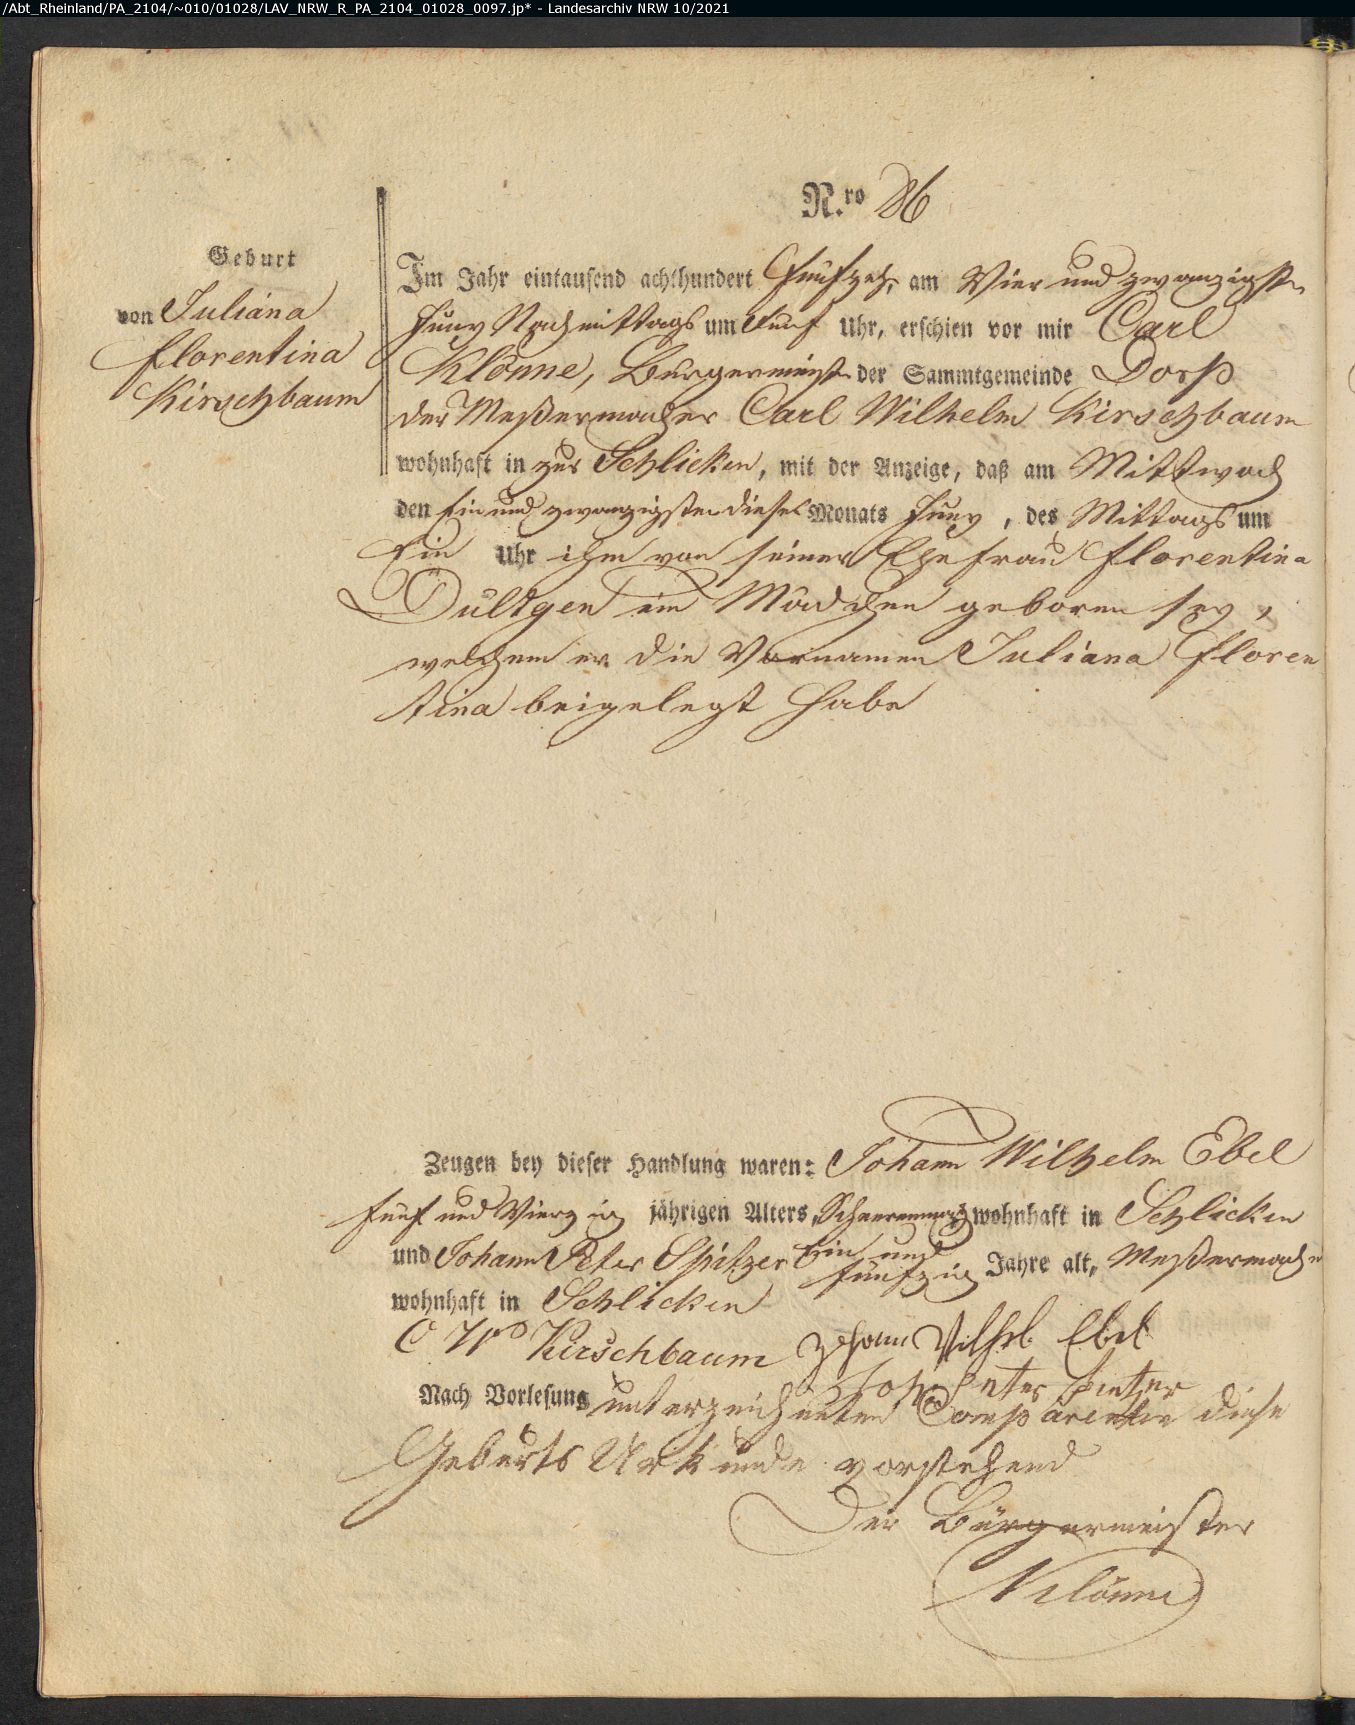 /Abt_Rheinland/PA_2104/~010/01028/LAV_NRW_R_PA_2104_01028_0097.jp* - Landesarchiv NRW 10/2021
N.ro 86
Geburt
von Juliana
Florentina
Kirschbaum
Im Jahr eintausend achthundert Funfzehn am Vier und zwanzigsten
Juny Nachmittags um Funf Uhr, erschien vor mir Carl
Klönne, Burgermeister der Sammtgemeinde Dorp
der Meßermacher Carl Wilhelm Kirschbaum
wohnhaft in zur Schlicken, mit der Anzeige, daß am Mittwoch
den Ein und zwanzigsten dieses Monats Juny, des Mittags um
Ein Uhr ihm von seiner Ehefrau Florentina
Dultgen ein Mädchen geboren sey,
welchem er die Vornamen Juliana Floren
tina beigelegt habe
Zeugen bey dieser Handlung waren: Johann Wilhelm Ebel
Funf und Vierzig jährigen Alters, Scheerenmach wohnhaft in Schlicken
und Johann Peter Spitzer Ein und
funfzig Jahre alt, Meßermacher
wohnhaft in Schlicken
C Wm Kirschbaum Johann Wilhel Ebel
Joh Peter
Nach Vorlesung unterzeichneten Comparenten diese
Geburts Urkunde vorstehend
Der Bürgermeister
Klönne